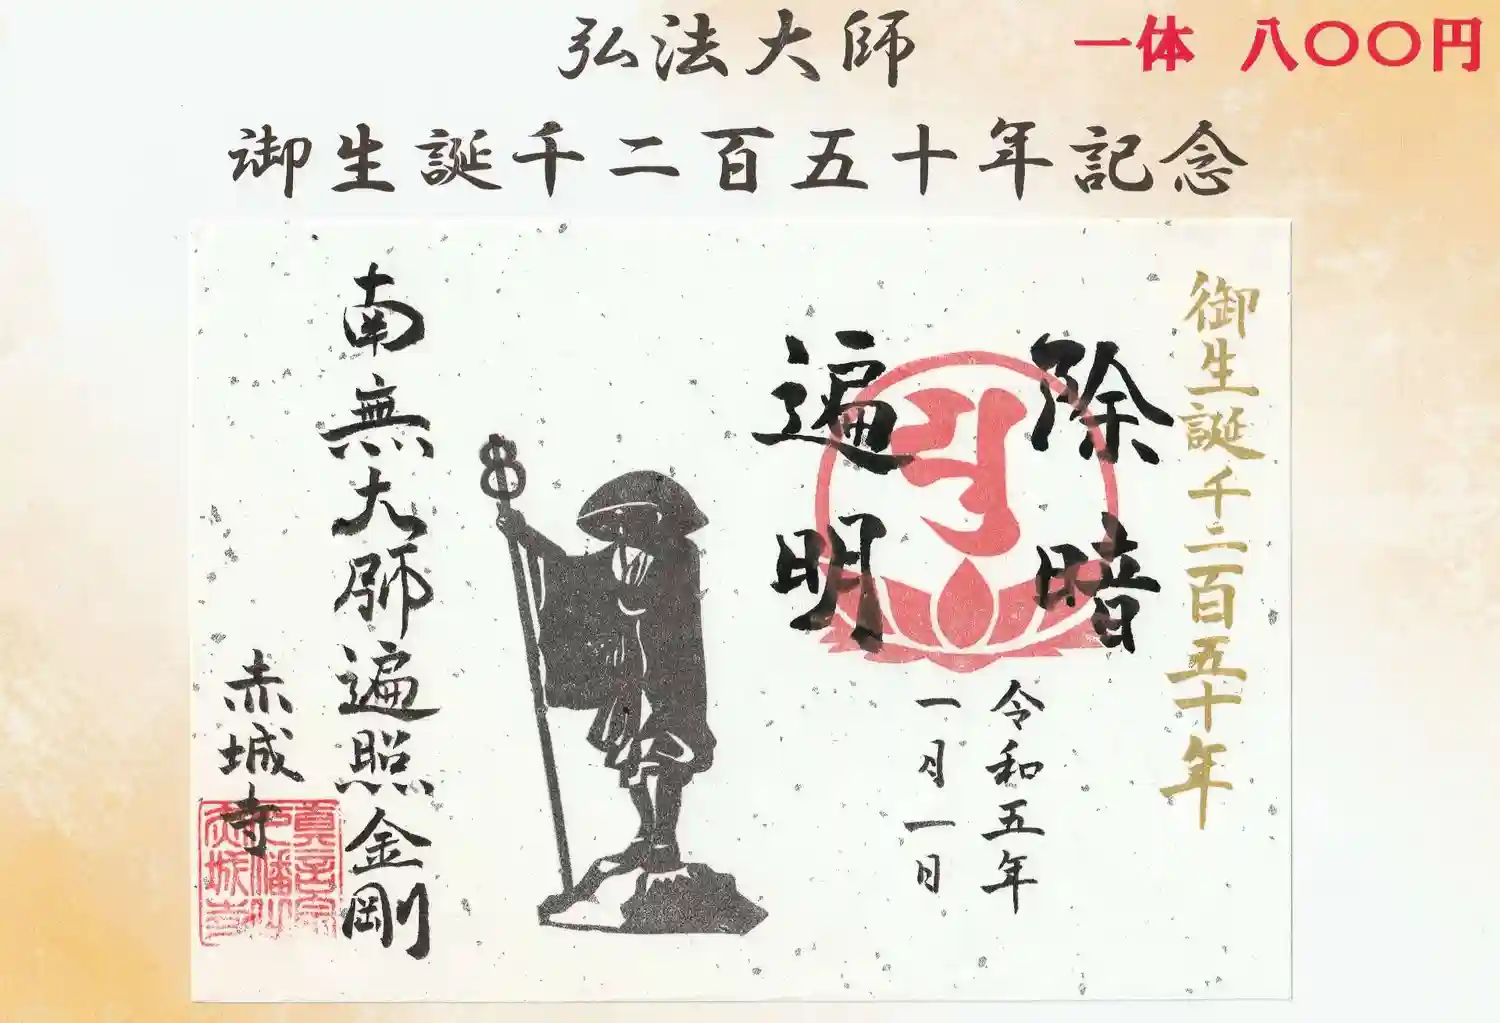 弘法大師
一体 八〇〇円
御生誕千二百五十年記念
御生誕千二百五十年
除暗
遍明
令和五年
一月一日
南無大師遍照金剛
赤城寺
真言宗
赤城寺